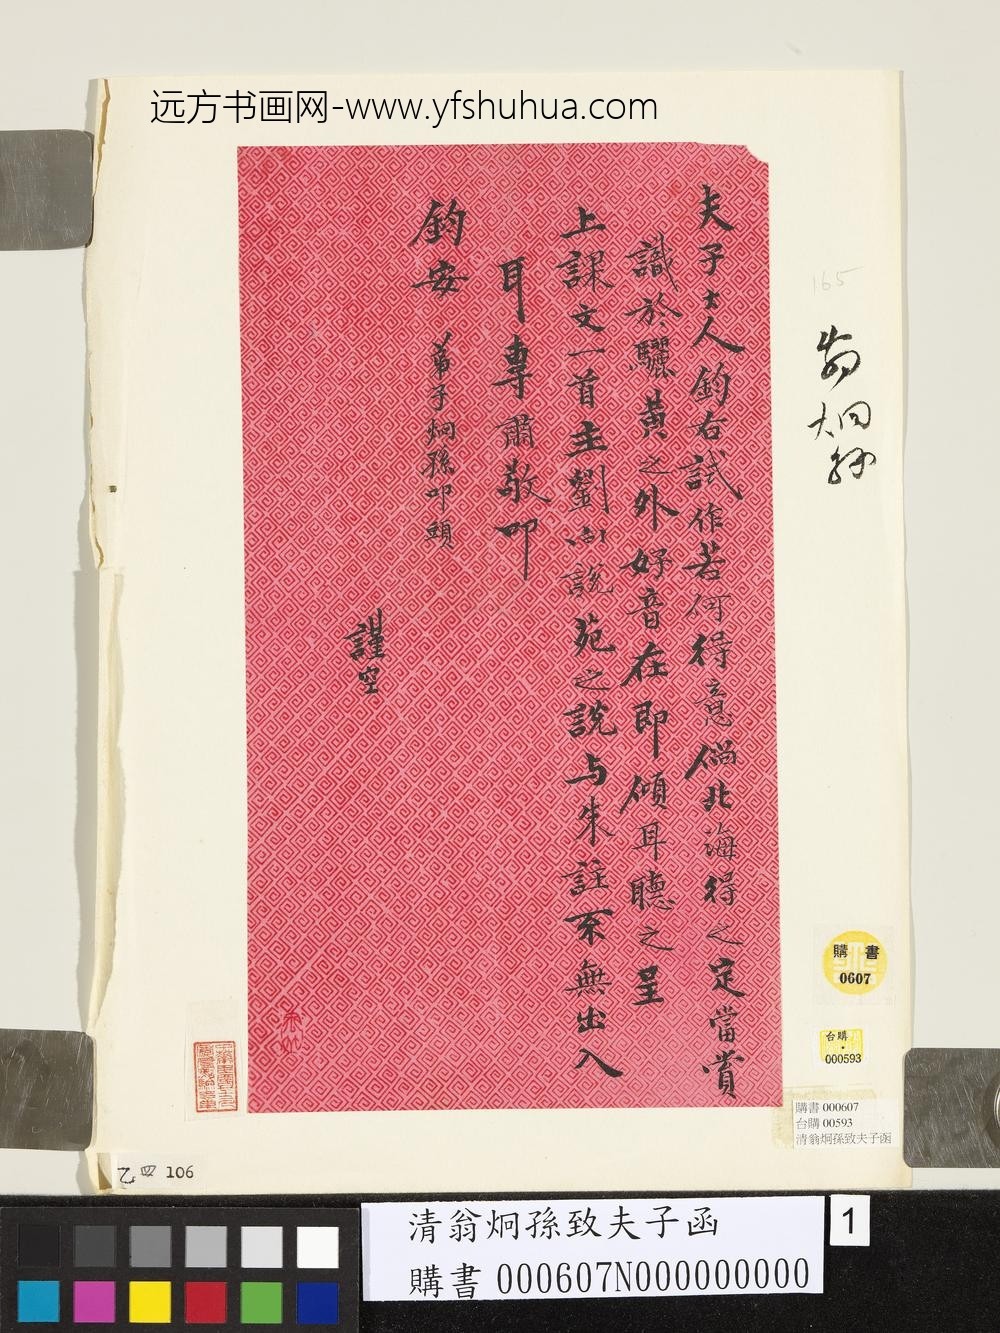 远方书画网-www.yfshuhua.com
夫子大人鈞右試作若何得意倘北海得之定當賞
識於驪黃之外好音在即傾耳聽之呈
上課文一首主劉向說苑之說与朱註不無出入
耳專肅敬叩
鈞安 弟子炯孫叩頭
謹空
165
翁炯孫
購書
0607
台購
000593
購書 000607
台購 00593
清翁炯孫致夫子函
乙 四 106
清翁炯孫致夫子函
購書 000607N000000000
1